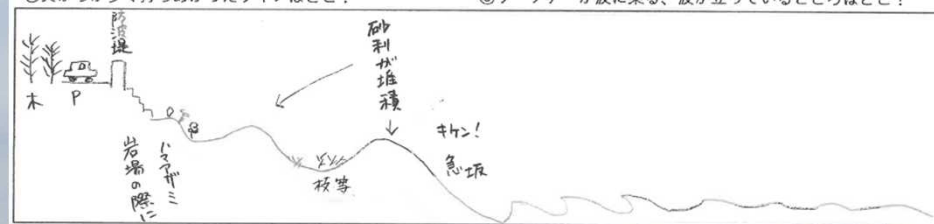 防波堤
木
P
岩場の際に
ハマアザミ
砂利が堆積
枝等
キケン!
急坂